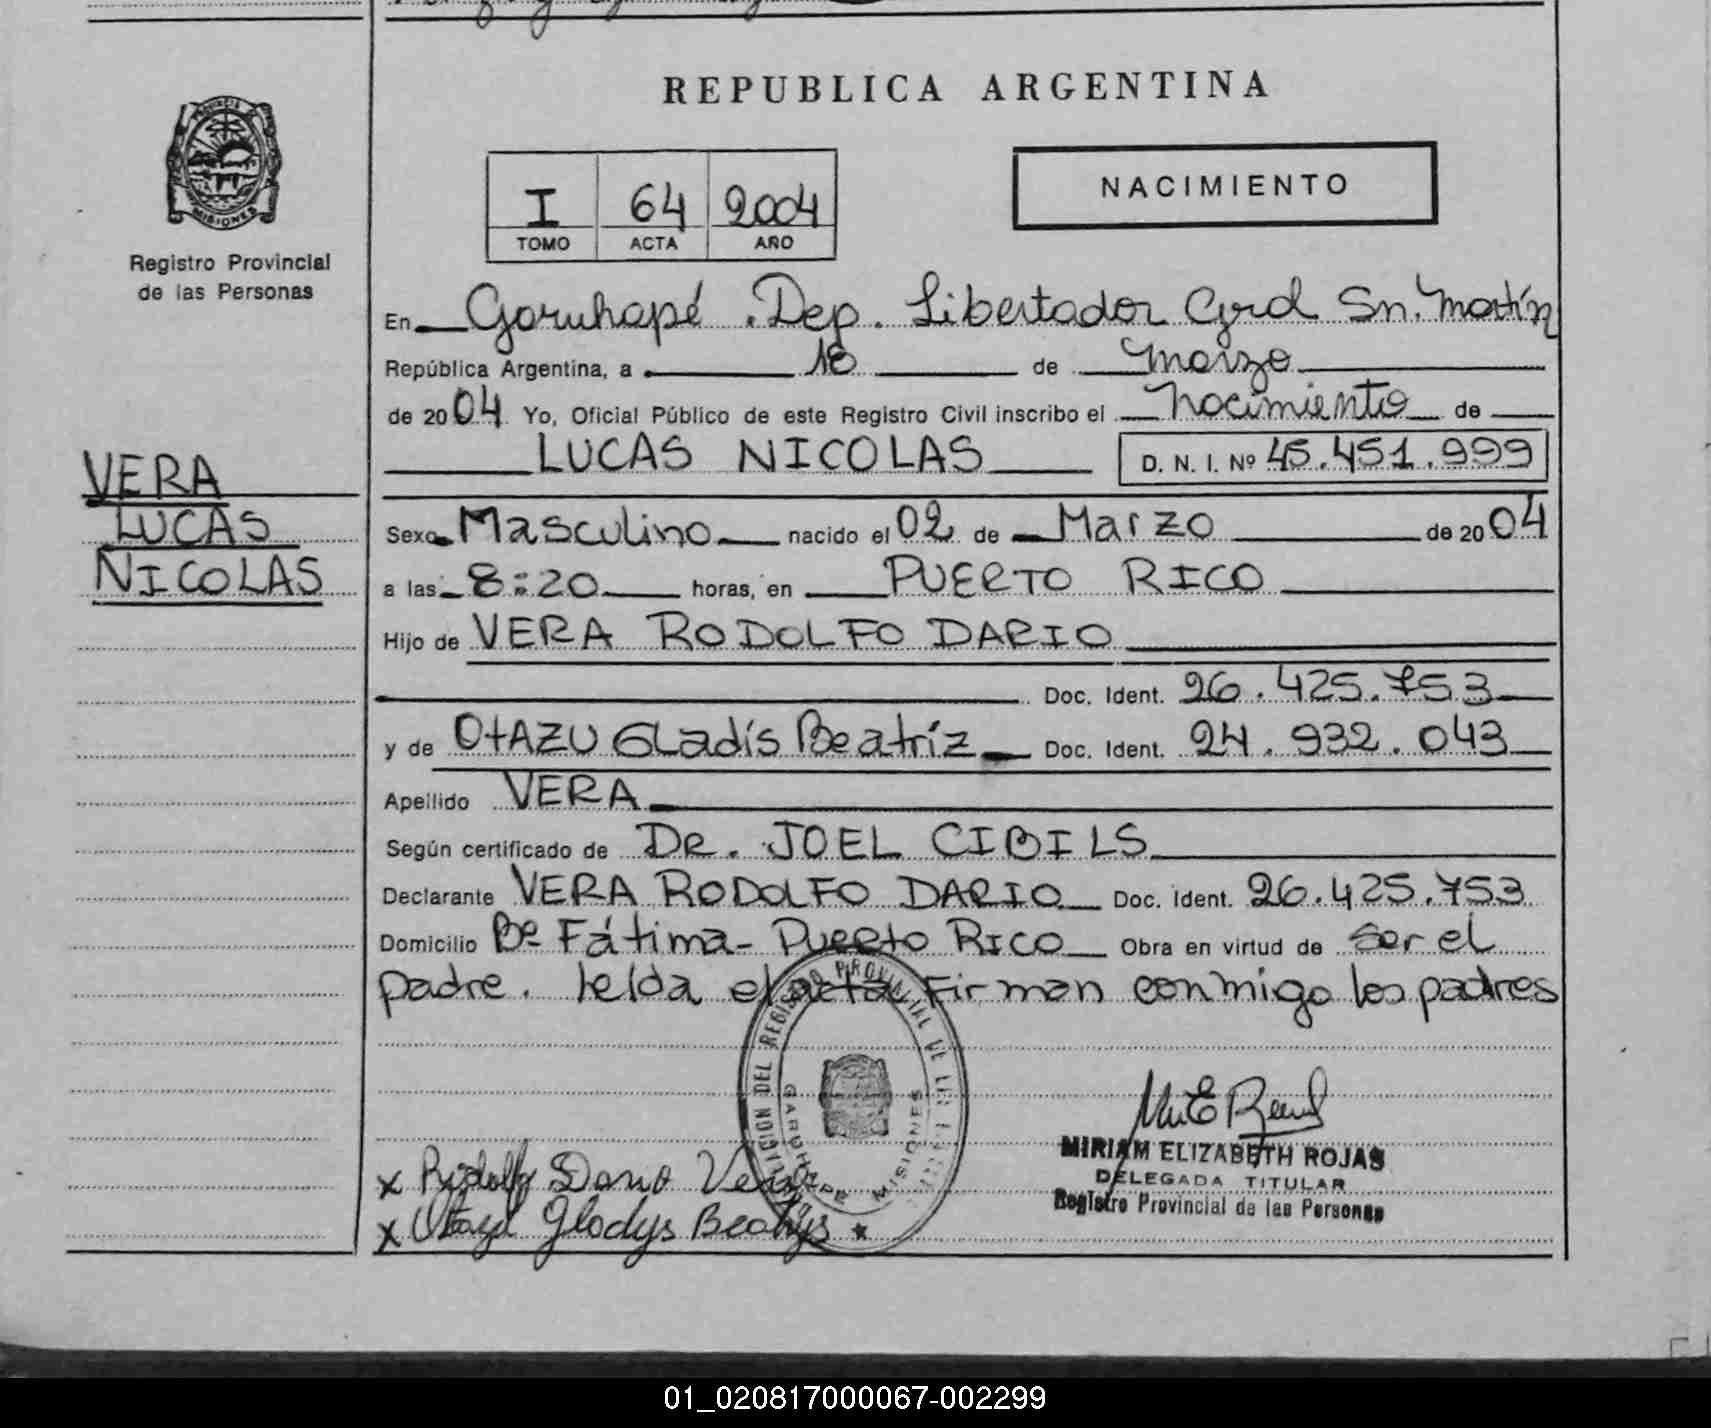 REPUBLICA ARGENTINA
PROVINCIA
MISIONES
Registro Provincial
de las Personas
I 64 2004
TOMO ACTA AÑO
NACIMIENTO
En Garuhapé . Dep. Libertador Gral Sn. Martín
República Argentina, a 18 de Marzo
de 2004 Yo, Oficial Público de este Registro Civil inscribo el Nacimiento de
LUCAS NICOLAS D. N. I. Nº 45.451.999
VERA
LUCAS
NICOLAS
Sexo Masculino nacido el 02 de Marzo de 2004
a las 8:20 horas, en PUERTO RICO
Hijo de VERA RODOLFO DARIO
Doc. Ident. 26.425.753
y de OtAZU GLadís Beatríz Doc. Ident. 24.932.043
Apellido VERA
Según certificado de DR. JOEL CIBILS
Declarante VERA RODOLFO DARIO Doc. Ident. 26.425.753
Domicilio Bº Fátima - Puerto Rico Obra en virtud de ser el
padre. leída el acta Firman conmigo los padres
DEL REGISTRO PROVINCIAL DE LAS
GARUHAPE MISIONES
MIRIAM ELIZABETH ROJAS
DELEGADA TITULAR
Registro Provincial de las Personas
x Rodolfo Dario Vera
x Otazu Gladys Beatrys
01_020817000067-002299